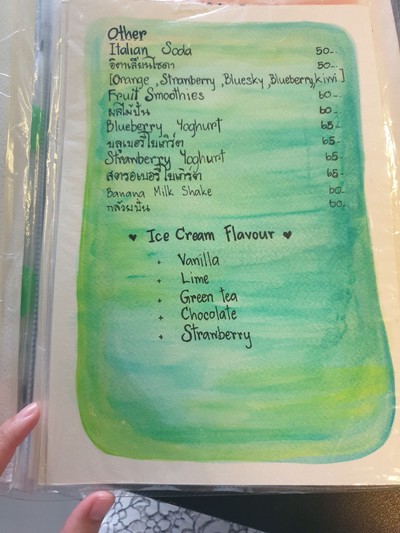 Other
Italian Soda 50.-
อิตาเลียนโซดา 50.-
[Orange, Stranberry, Bluesky, Blueberry, kiwi]
Fruit Smoothies 60.-
ผลไม้ปั่น 60.-
Blueberry Yoghurt 65.-
บลูเบอรี่โยเกิร์ต 65.-
Strawberry Yoghurt 65.-
สตรอเบอรี่โยเกิร์ต 65.-
Banana Milk Shake 60.-
กล้วยปั่น 60.-
♥ Ice Cream Flavour ♥
+ Vanilla
+ Lime
+ Green tea
+ Chocolate
+ Strawberry